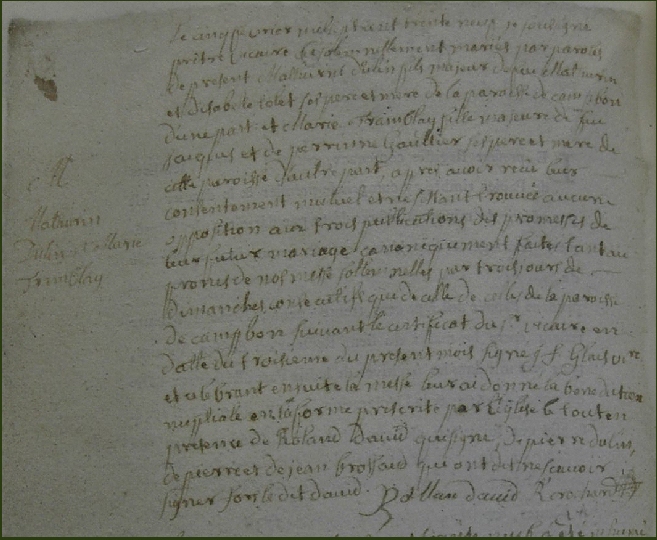 Le cinq feurier mil sept cent trente neuf je soussigné
prêtre vicaire ai solemnellement mariés par paroles
de present Mathurin Dulin fils majeur de feu Mathurin
et disabele Lolet ses pere et mere de la paroisse de campbon
d'une part et Marie Tramblay fille majeure de feu
Jacques et de perrinne Gaultier ses pere et mere de
cette paroisse d'aultre part, apres avoir recu leur
consentement mutuel et ne s'etant trouvée aucune
opposition aux trois publications des promesses de
leur futur mariage canoniquement faites tant au
prones de nos messe sollemnelles par trois jours de
Dimanches consecutifs que de celle de celles de la paroisse
de campbon suivant le certificat du sr vicaire en
datte du troisieme du present mois signe J f Glais vire
et celebrant ensuite la messe leur ai donné la benediction
nuptiale en la forme prescrite par l'Eglise le tout en
presence de Roland David qui signe, de pierre dulin,
de pierre et de jean brossaud qui ont dit ne scavoir
signer fors le dit david. Rollan david R crochard
M
Mathurin
Dulin et Marie
Tramblay